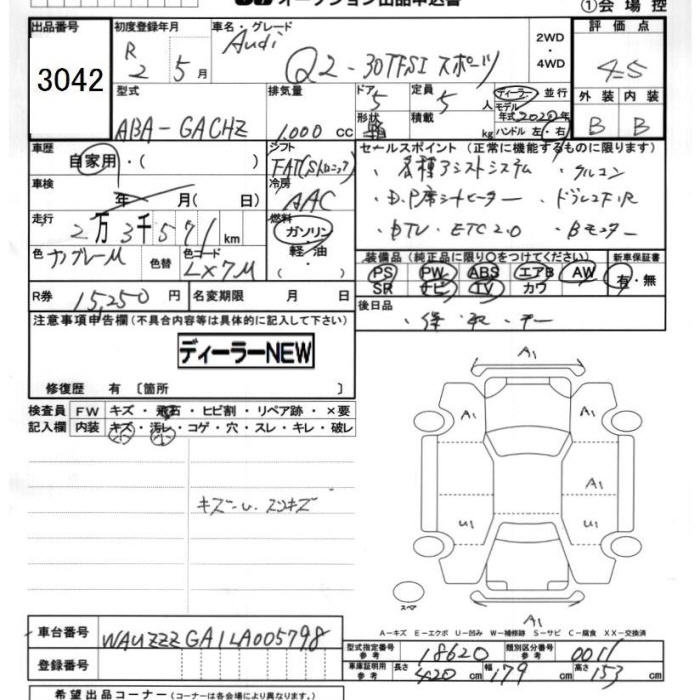 オークション出品申込書
①会場控
出品番号
3042
初度登録年月
R 2 5月
車名・グレード
Audi Q2-30TFSI スポーツ
2WD
・
4WD
評価点
4.5
型式
ABA-GACHZ
排気量
1,000 cc
ドア
5
形状
定員
5 人
積載
kg
ディーラー・並行
モデル
年式 2020年
ハンドル 左・右
外装 内装
B B
車歴
自家用・( )
シフト
FAT(Sトロニック)
セールスポイント(正常に機能するものに限ります)
・各種アシストシステム ・クルコン
・D.P席シートヒーター ・ドラレコF.R
・DTV ・ETC2.0 ・Bモニター
車検
年 月( 日)
冷房
AAC
走行
2万3千571km
燃料
ガソリン
・
軽・油
色
色替
色コード
LX7M
装備品(純正品に限り○をつけてください)
PS PW ABS エアB AW
SR ナビ TV カワ
新車保証書
有・無
R券 15,250円
名変期限 月 日
後日品
・保・取・ナー
注意事項申告欄(不具合内容等は具体的に記入して下さい)
ディーラーNEW
修復歴 有〔箇所 〕
検査員
記入欄
FW キズ・飛石・ヒビ割・リペア跡・×要
内装 キズ・汚レ・コゲ・穴・スレ・キレ・破レ
A1
A1 A1
A1
U1 U1
A1
スペア
A-キズ E-エクボ U-凹み W-補修跡 S-サビ C-腐食 XX-交換済
車台番号 WAUZZZGA1LA005798
登録番号
型式指定番号
参考
18620
類別区分番号
参考
0011
車庫証明用
参考
長さ 420cm 幅 179cm 高さ 153cm
希望出品コーナー(コーナーは各会場により異なります。)